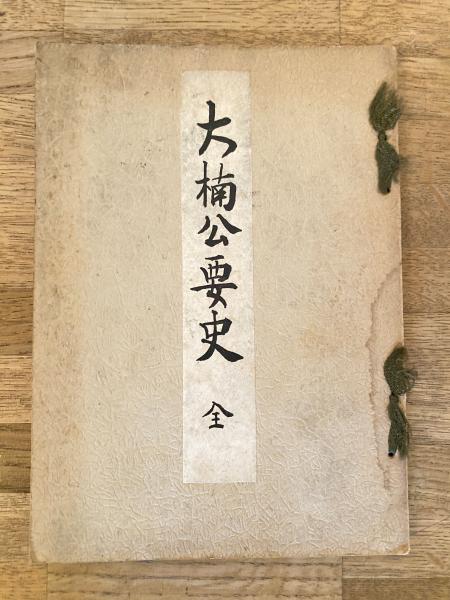 大楠公要史 全